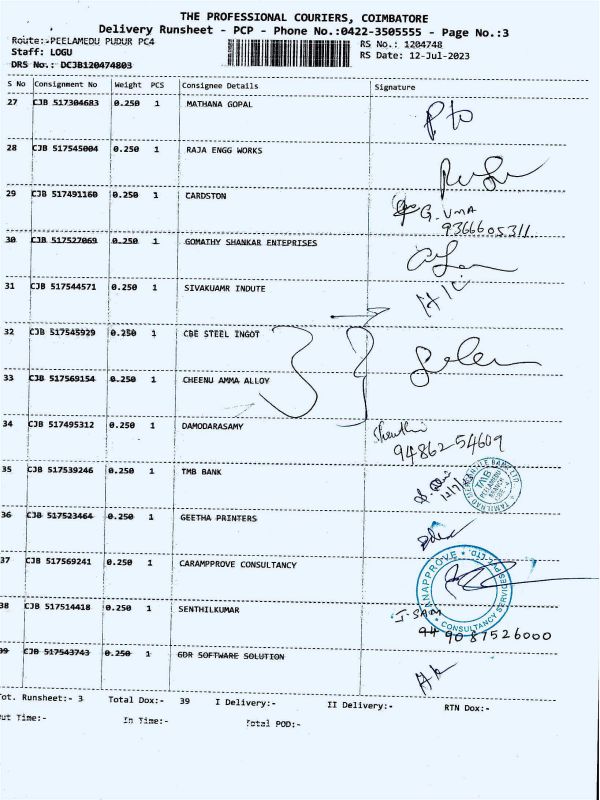 THE PROFESSIONAL COURIERS, COIMBATORE
Delivery Runsheet - PCP - Phone No.:0422-3505555 - Page No.:3
Route:-PEELAMEDU PUDUR PC4
RS No.: 1204748
Staff: LOGU
RS Date: 12-Jul-2023
DRS No.: DCJB120474803
S No Consignment No Weight PCS Consignee Details Signature
27 CJB 517304683 0.250 1 MATHANA GOPAL
28 CJB 517545004 0.250 1 RAJA ENGG WORKS
29 CJB 517491160 0.250 1 CARDSTON
G. UMA
9366605311
30 CJB 517527069 0.250 1 GOMATHY SHANKAR ENTEPRISES
31 CJB 517544571 0.250 1 SIVAKUAMR INDUTE
32 CJB 517545929 0.250 1 CBE STEEL INGOT
33 CJB 517569154 0.250 1 CHEENU AMMA ALLOY
34 CJB 517495312 0.250 1 DAMODARASAMY
94862-54609
35 CJB 517539246 0.250 1 TMB BANK
36 CJB 517523464 0.250 1 GEETHA PRINTERS
37 CJB 517569241 0.250 1 CARAMPPROVE CONSULTANCY
CONSULTANCY SERVICES
38 CJB 517514418 0.250 1 SENTHILKUMAR
39 CJB 517543743 0.250 1 GDR SOFTWARE SOLUTION
Tot. Runsheet:- 3 Total Dox:- 39 I Delivery:- II Delivery:- RTN Dox:-
Out Time:- In Time:- Total POD:-